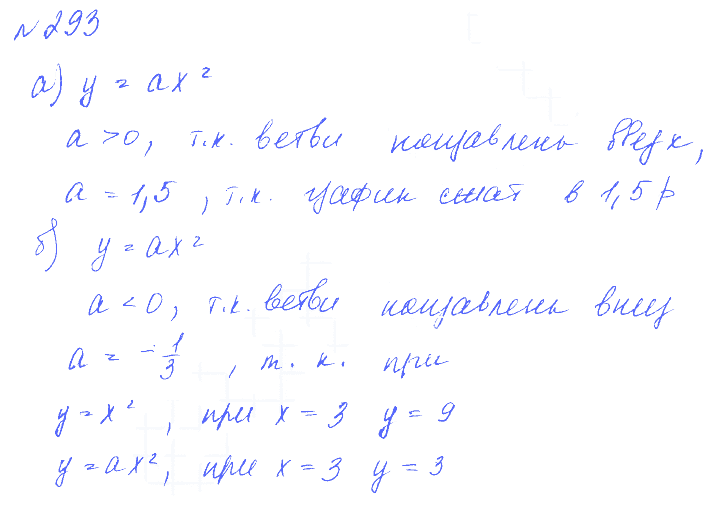 №293
а) y = ax²
a > 0, т.к. ветви направлены вверх,
a = 1,5, т.к. график сжат в 1,5 р
б) y = ax²
a < 0, т.к. ветви направлены вниз
a = -1/3, т.к. при
y = x², при x = 3 y = 9
y = ax², при x = 3 y = 3